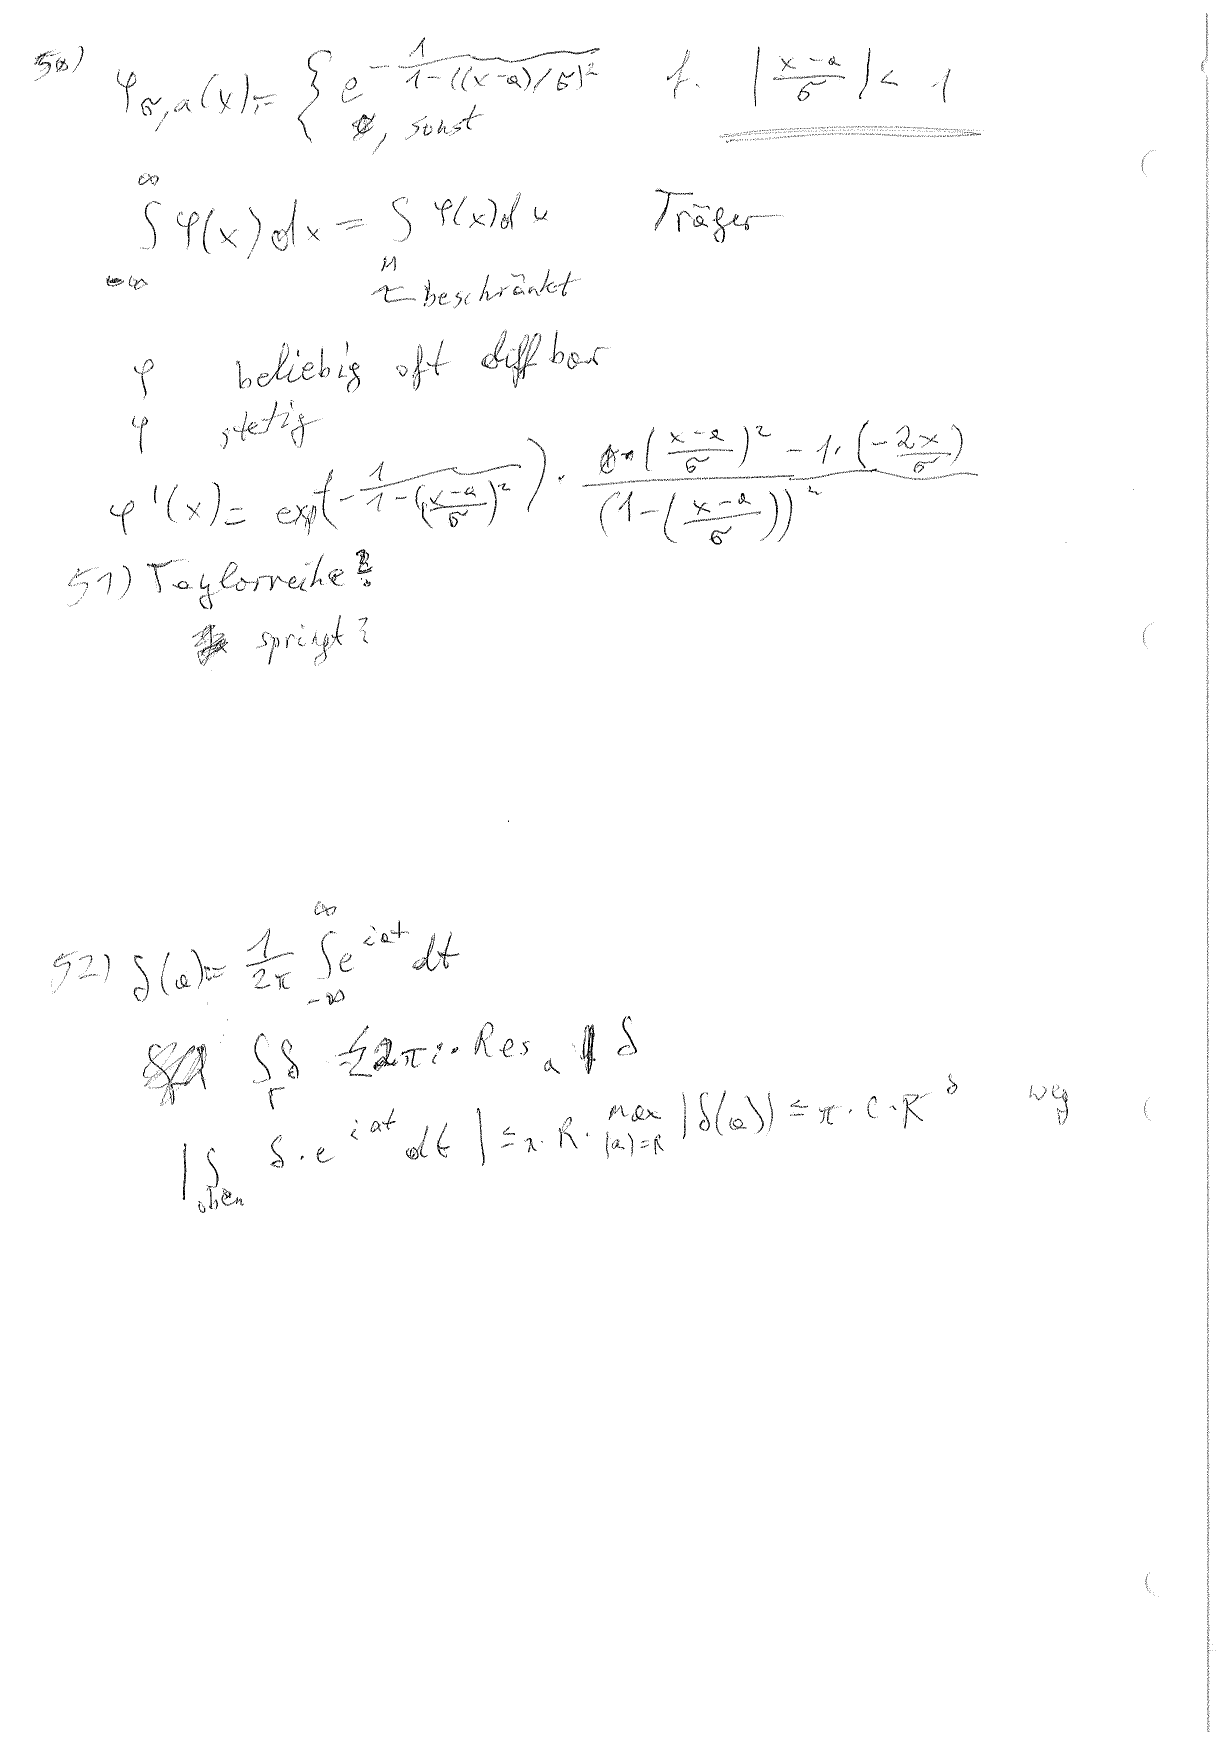 50) φσ,a(x) := { e^(-1/(1-((x-a)/σ)²)) f. |(x-a)/σ| < 1
, sonst
∞
∫ φ(x) dx = ∫ φ(x) dx Träger
-∞ M
beschränkt
φ beliebig oft diffbar
φ stetig
φ'(x) = exp(-1/(1-((x-a)/σ)²)) · (((x-a)/σ)² - 1 · (-2x/σ)) / (1-((x-a)/σ))²
51) Taylorreihe?
springt?
52) δ(a) := 1/2π ∫_{-∞}^{∞} e^{iat} dt
∫_Γ δ 2πi · Res_a δ
|∫_oben δ · e^{iat} dt| ≤ π · R · max_{|a|=R} |δ(a)| ≤ π · C · R^δ weg